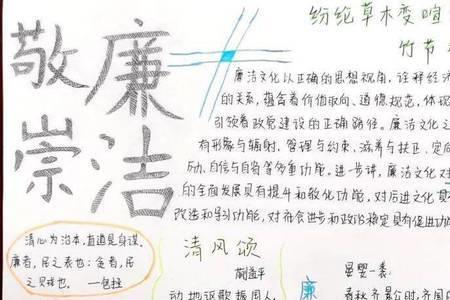 敬廉
崇洁
纷纶草木变暄
竹节
廉洁文化以正确的思想视角，诠释经济
的关系，蕴含着价值取向、道德规范，体现
引领着政党建设的正确路径。廉洁文化之
有形象与辐射、管理与约束、滋养与扶正、定向
励、自信与自省等多重功能。进一步讲，廉洁文化对
的全面发展具有提升和教化功能，对后进文化具
改造和导引功能，对社会进步和政治稳定具有促进功能
清心为治本，直道是身谋。
廉者，民之表也；贪者，民
之贼也。 —包拯
清风颂
动地讴歌振周人
廉
晏婴一表
春秋齐景公时，齐国